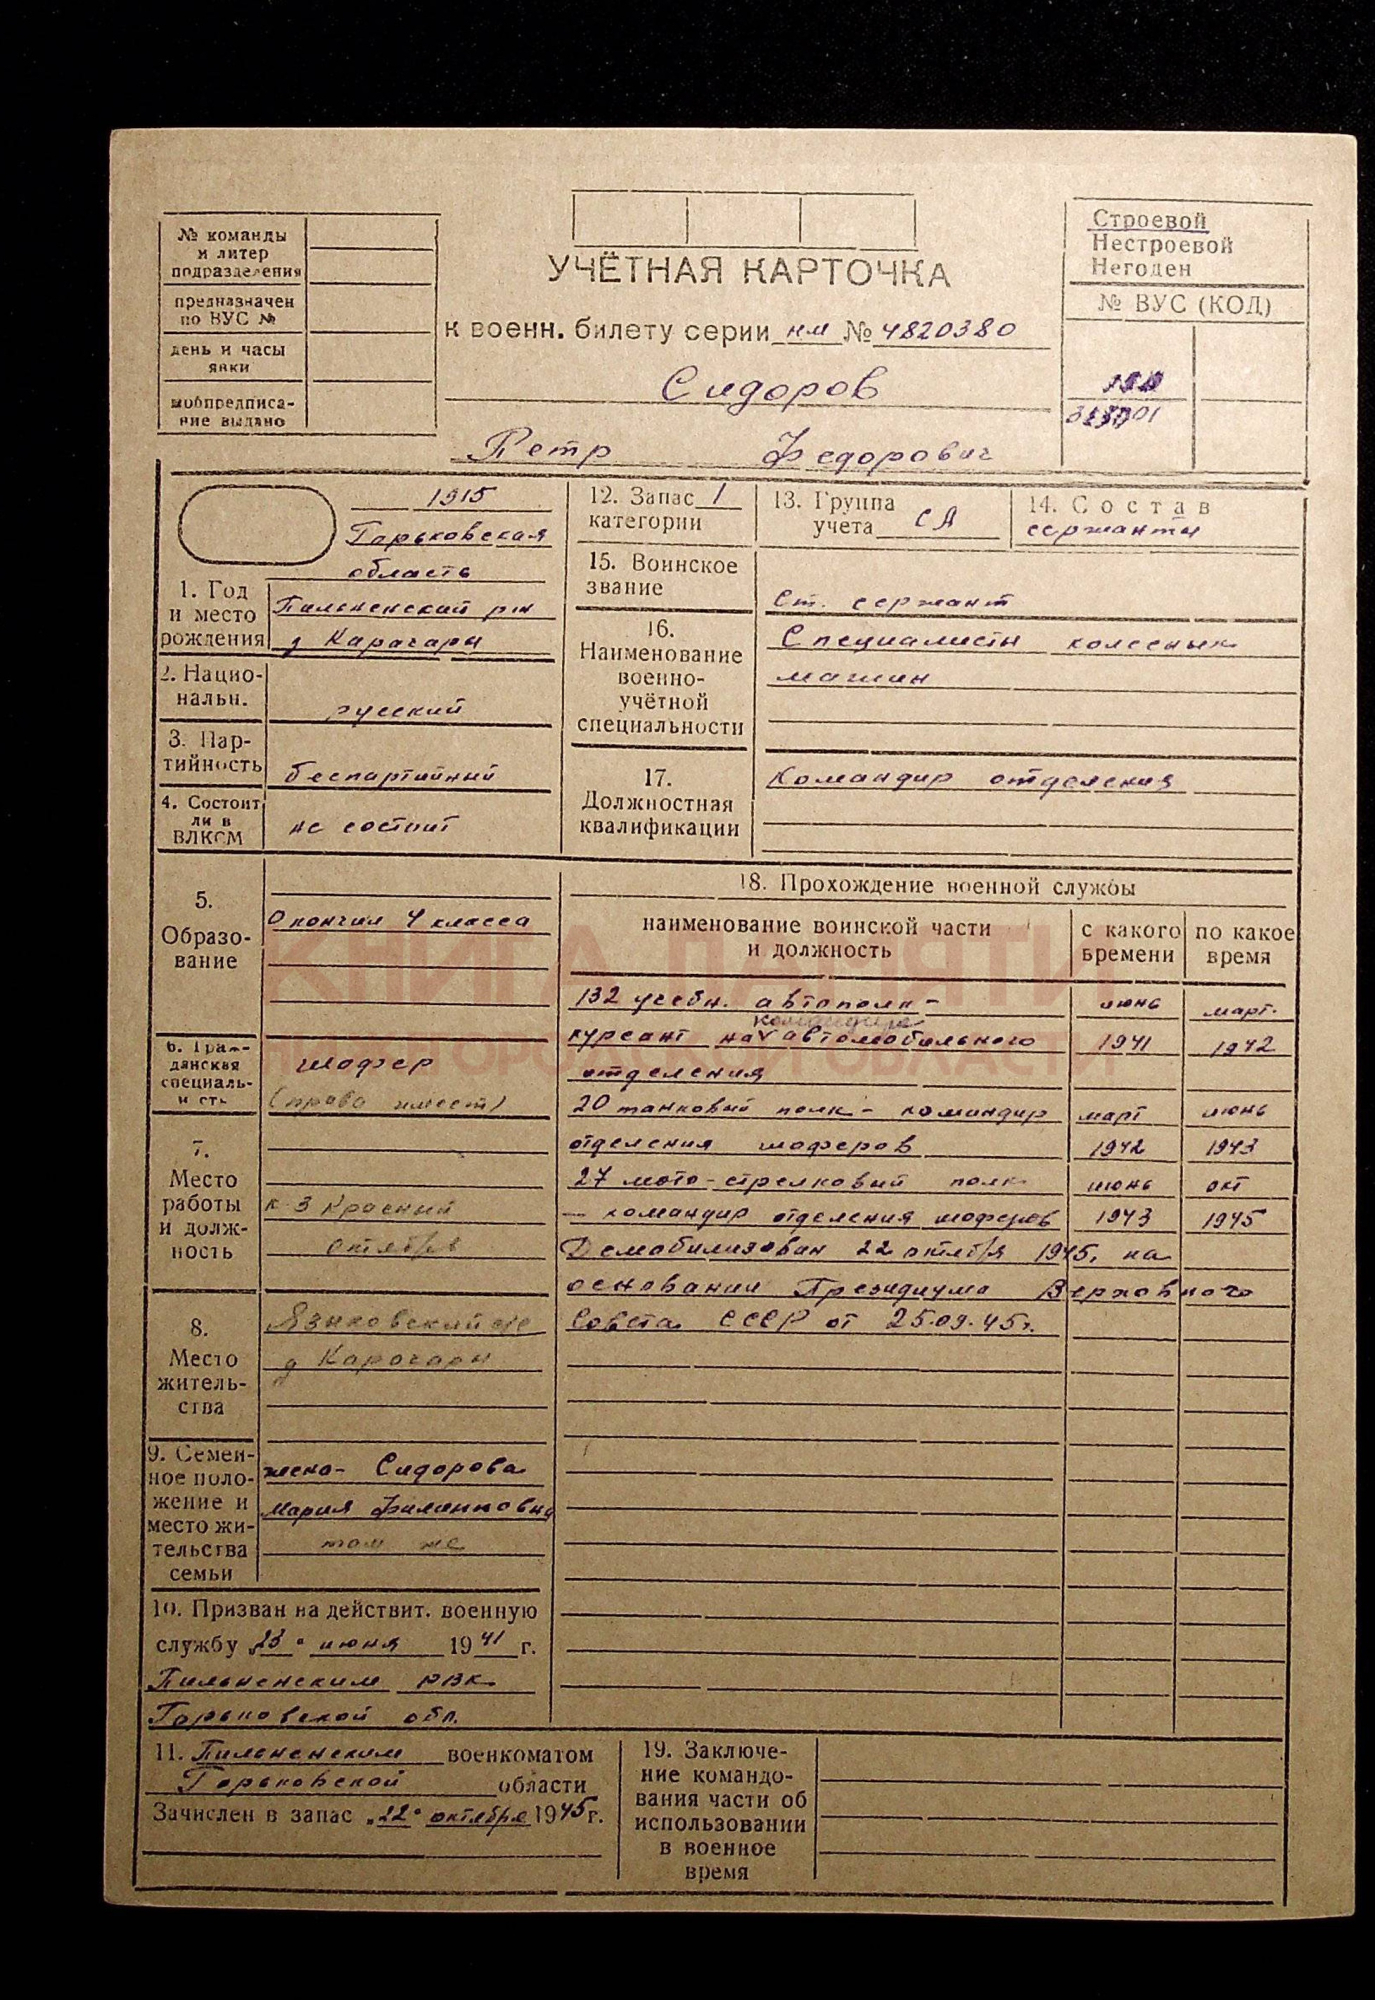 № команды
и литер
подразделения
предназначен
по ВУС №
день и часы
явки
мобпредписа-
ние выдано
УЧЁТНАЯ КАРТОЧКА
к военн. билету серии нм № 4820380
Сидоров
Петр Федорович
Строевой
Нестроевой
Негоден
№ ВУС (КОД)
1915
Горьковская
область
1. Год
и место
рождения
Пильненский рн
д Карачары
2. Нацио-
нальн.
русский
3. Пар-
тийность
беспартийный
4. Состоит
ли в
ВЛКСМ
не состоит
12. Запас 1
категории
13. Группа
учета СА
14. Состав
сержанты
15. Воинское
звание
Ст. сержант
16.
Наименование
военно-
учётной
специальности
Специалисты колесных
машин
17.
Должностная
квалификации
Командир отделения
5.
Образо-
вание
Окончил 4 класса
6. Граж-
данская
специаль-
н сть
шофер
(права имеет)
7.
Место
работы
и долж-
ность
к-з Красный
октябрь
8.
Место
житель-
ства
Языковский с/с
д Карачары
9. Семей-
ное поло-
жение и
место жи-
тельства
семьи
жена- Сидорова
Мария Филипповна
там же
10. Призван на действит. военную
службу „23" июня 1941 г.
Пильненским РВК
Горьковской обл.
18. Прохождение военной службы
наименование воинской части
и должность
с какого
времени
по какое
время
132 учебн. автополк- июнь март.
командира
курсант на автомобильного 1941 1942
отделения
20 танковый полк- командир март июнь
отделения шоферов 1942 1943
27 мото-стрелковый полк июнь окт
- командир отделения шоферов 1943 1945
Демобилизован 22 октября 1945, на
основании Президиума Верховного
Совета СССР от 25.09.45г.
11. Пильненским военкоматом
Горьковской области
Зачислен в запас „22" октября 1945 г.
19. Заключе-
ние командо-
вания части об
использовании
в военное
время
КНИГА ПАМЯТИ
НИЖЕГОРОДСКОЙ ОБЛАСТИ